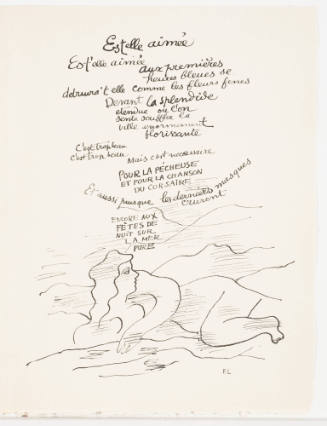 Est elle aimée
Est elle aimée aux premières
heures bleues se
detruira't elle comme les fleurs feues
Devant la splendide
etendue où l'on
sente souffler la
ville enormement
florissante
C'est trop beau
c'est trop beau
Mais c'est necessaire
POUR LA PÊCHEUSE
ET POUR LA CHANSON
DU CORSAIRE
Et aussi puisque les derniers masques
crurent
ENCORE AUX
FÊTES DE
NUIT SUR
LA MER
PURE
F.L